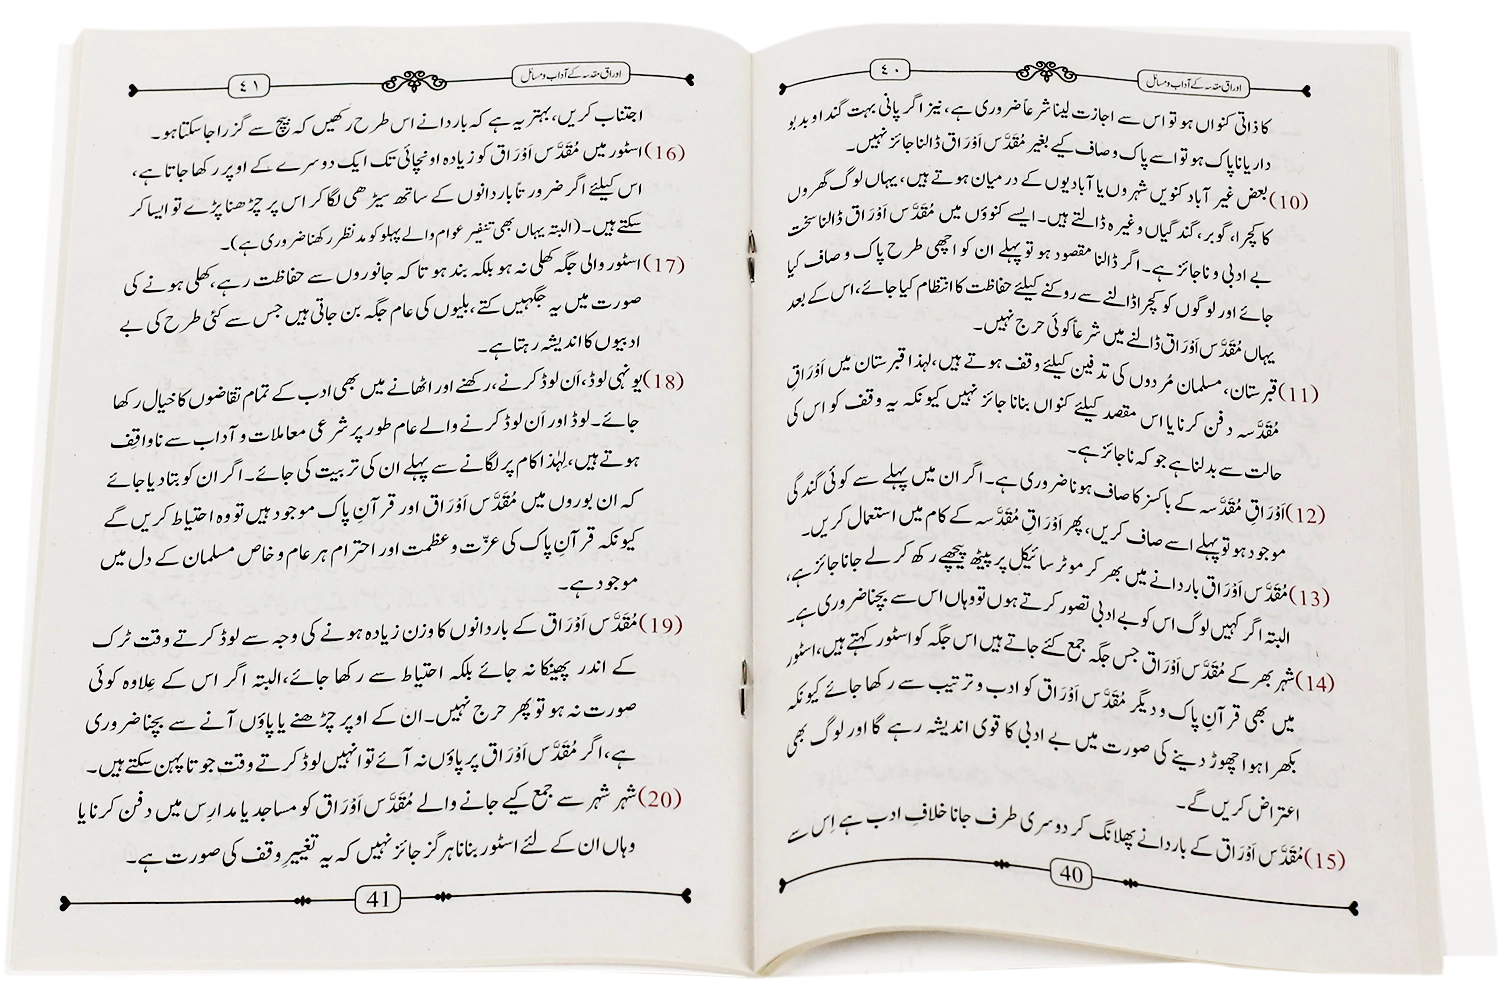 اوراق مقدسہ کے آداب و مسائل
٤٠
کا ذاتی کنواں ہو تو اس سے اجازت لینا شرعاً ضروری ہے، نیز اگر پانی بہت گندا و بدبو
دار یا ناپاک ہو تو اسے پاک و صاف کیے بغیر مُقَدَّس اَوْرَاق ڈالنا جائز نہیں۔
(10) بعض غیر آباد کنویں شہروں یا آبادیوں کے درمیان ہوتے ہیں، یہاں لوگ گھروں
کا کچرا، گوبر، گندگیاں وغیرہ ڈالتے ہیں۔ ایسے کنوؤں میں مُقَدَّس اَوْرَاق ڈالنا سخت
بے ادبی و ناجائز ہے۔ اگر ڈالنا مقصود ہو تو پہلے ان کو اچھی طرح پاک و صاف کیا
جائے اور لوگوں کو کچرا ڈالنے سے روکنے کیلئے حفاظت کا انتظام کیا جائے، اس کے بعد
یہاں مُقَدَّس اَوْرَاق ڈالنے میں شرعاً کوئی حرج نہیں۔
(11) قبرستان، مسلمان مُردوں کی تدفین کیلئے وقف ہوتے ہیں، لہذا قبرستان میں اَوْرَاقِ
مُقَدَّسہ دفن کرنا یا اس مقصد کیلئے کنواں بنانا جائز نہیں کیونکہ یہ وقف کو اس کی
حالت سے بدلنا ہے جو کہ ناجائز ہے۔
(12) اَوْرَاقِ مُقَدَّسہ کے باکسز کا صاف ہونا ضروری ہے۔ اگر ان میں پہلے سے کوئی گندگی
موجود ہو تو پہلے اسے صاف کریں، پھر اَوْرَاقِ مُقَدَّسہ کے کام میں استعمال کریں۔
(13) مُقَدَّس اَوْرَاق باردانے میں بھر کر موٹر سائیکل پر پیٹھ پیچھے رکھ کر لے جانا جائز ہے،
البتہ اگر کہیں لوگ اس کو بے ادبی تصور کرتے ہوں تو وہاں اس سے بچنا ضروری ہے۔
(14) شہر بھر کے مُقَدَّس اَوْرَاق جس جگہ جمع کئے جاتے ہیں اس جگہ کو اسٹور کہتے ہیں، اسٹور
میں بھی قرآنِ پاک و دیگر مُقَدَّس اَوْرَاق کو ادب و ترتیب سے رکھا جائے کیونکہ
بکھرا ہوا چھوڑ دینے کی صورت میں بے ادبی کا قوی اندیشہ رہے گا اور لوگ بھی
اعتراض کریں گے۔
(15) مُقَدَّس اَوْرَاق کے باردانے پھلانگ کر دوسری طرف جانا خلافِ ادب ہے اِس سے
40
اوراق مقدسہ کے آداب و مسائل
٤١
اجتناب کریں، بہتر یہ ہے کہ باردانے اس طرح رکھیں کہ بیچ سے گزرا جا سکتا ہو۔
(16) اسٹور میں مُقَدَّس اَوْرَاق کو زیادہ اونچائی تک ایک دوسرے کے اوپر رکھا جاتا ہے،
اس کیلئے اگر ضرورتاً باردانوں کے ساتھ سیڑھی لگا کر اس پر چڑھنا پڑے تو ایسا کر
سکتے ہیں۔ (البتہ یہاں بھی تنفیر عوام والے پہلو کو مد نظر رکھنا ضروری ہے)۔
(17) اسٹور والی جگہ کھلی نہ ہو بلکہ بند ہو تا کہ جانوروں سے حفاظت رہے، کھلی ہونے کی
صورت میں یہ جگہیں کتے، بلیوں کی عام جگہ بن جاتی ہیں جس سے کئی طرح کی بے
ادبیوں کا اندیشہ رہتا ہے۔
(18) یونہی لوڈ، اَن لوڈ کرنے، رکھنے اور اٹھانے میں بھی ادب کے تمام تقاضوں کا خیال رکھا
جائے۔ لوڈ اور اَن لوڈ کرنے والے عام طور پر شرعی معاملات و آداب سے ناواقِف
ہوتے ہیں، لہٰذا کام پر لگانے سے پہلے ان کی تربیت کی جائے۔ اگر ان کو بتا دیا جائے
کہ ان بوروں میں مُقَدَّس اَوْرَاق اور قرآنِ پاک موجود ہیں تو وہ احتیاط کریں گے
کیونکہ قرآنِ پاک کی عزّت و عظمت اور احترام ہر عام و خاص مسلمان کے دل میں
موجود ہے۔
(19) مُقَدَّس اَوْرَاق کے باردانوں کا وزن زیادہ ہونے کی وجہ سے لوڈ کرتے وقت ٹرک
کے اندر پھینکا نہ جائے بلکہ احتیاط سے رکھا جائے، البتہ اگر اس کے عِلاوہ کوئی
صورت نہ ہو تو پھر حرج نہیں۔ ان کے اوپر چڑھنے یا پاؤں آنے سے بچنا ضروری
ہے، اگر مُقَدَّس اَوْرَاق پر پاؤں نہ آئے تو انہیں لوڈ کرتے وقت جوتا پہن سکتے ہیں۔
(20) شہر شہر سے جمع کیے جانے والے مُقَدَّس اَوْرَاق کو مساجد یا مدارِس میں دفن کرنا یا
وہاں ان کے لئے اسٹور بنانا ہرگز جائز نہیں کہ یہ تغییرِ وقف کی صورت ہے۔
41